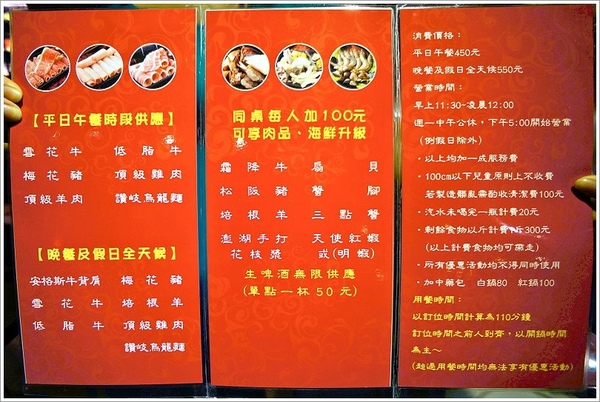 【平日午餐時段供應】
雪花牛 低脂牛
梅花豬 頂級雞肉
頂級羊肉 讚岐烏龍麵
【晚餐及假日全天候】
安格斯牛背肩 梅花豬
雪花牛 培根羊
低脂牛 頂級雞肉
讚岐烏龍麵
同桌每人加100元
可享肉品、海鮮升級
霜降牛 扇貝
松阪豬 蟹腳
培根羊 三點蟹
澎湖手打 天使紅蝦
花枝漿 或(明蝦)
生啤酒無限供應
(單點一杯50元)
消費價格：
平日午餐450元
晚餐及假日全天候550元
營業時間：
早上11:30~凌晨12:00
週一中午公休，下午5:00開始營業
(例假日除外)
·以上均加一成服務費
·100cm以下兒童原則上不收費
若製造髒亂需酌收清潔費100元
·汽水未喝完一瓶計費20元
·剩餘食物以斤計費NT300元
(以上計費食物均可帶走)
·所有優惠活動均不得同時使用
·加中藥包 白鍋80 紅鍋100
用餐時間：
以訂位時間計算為110分鐘
訂位時間之前人到齊，以開鍋時間
為主~
(超過用餐時間均無法享有優惠活動)